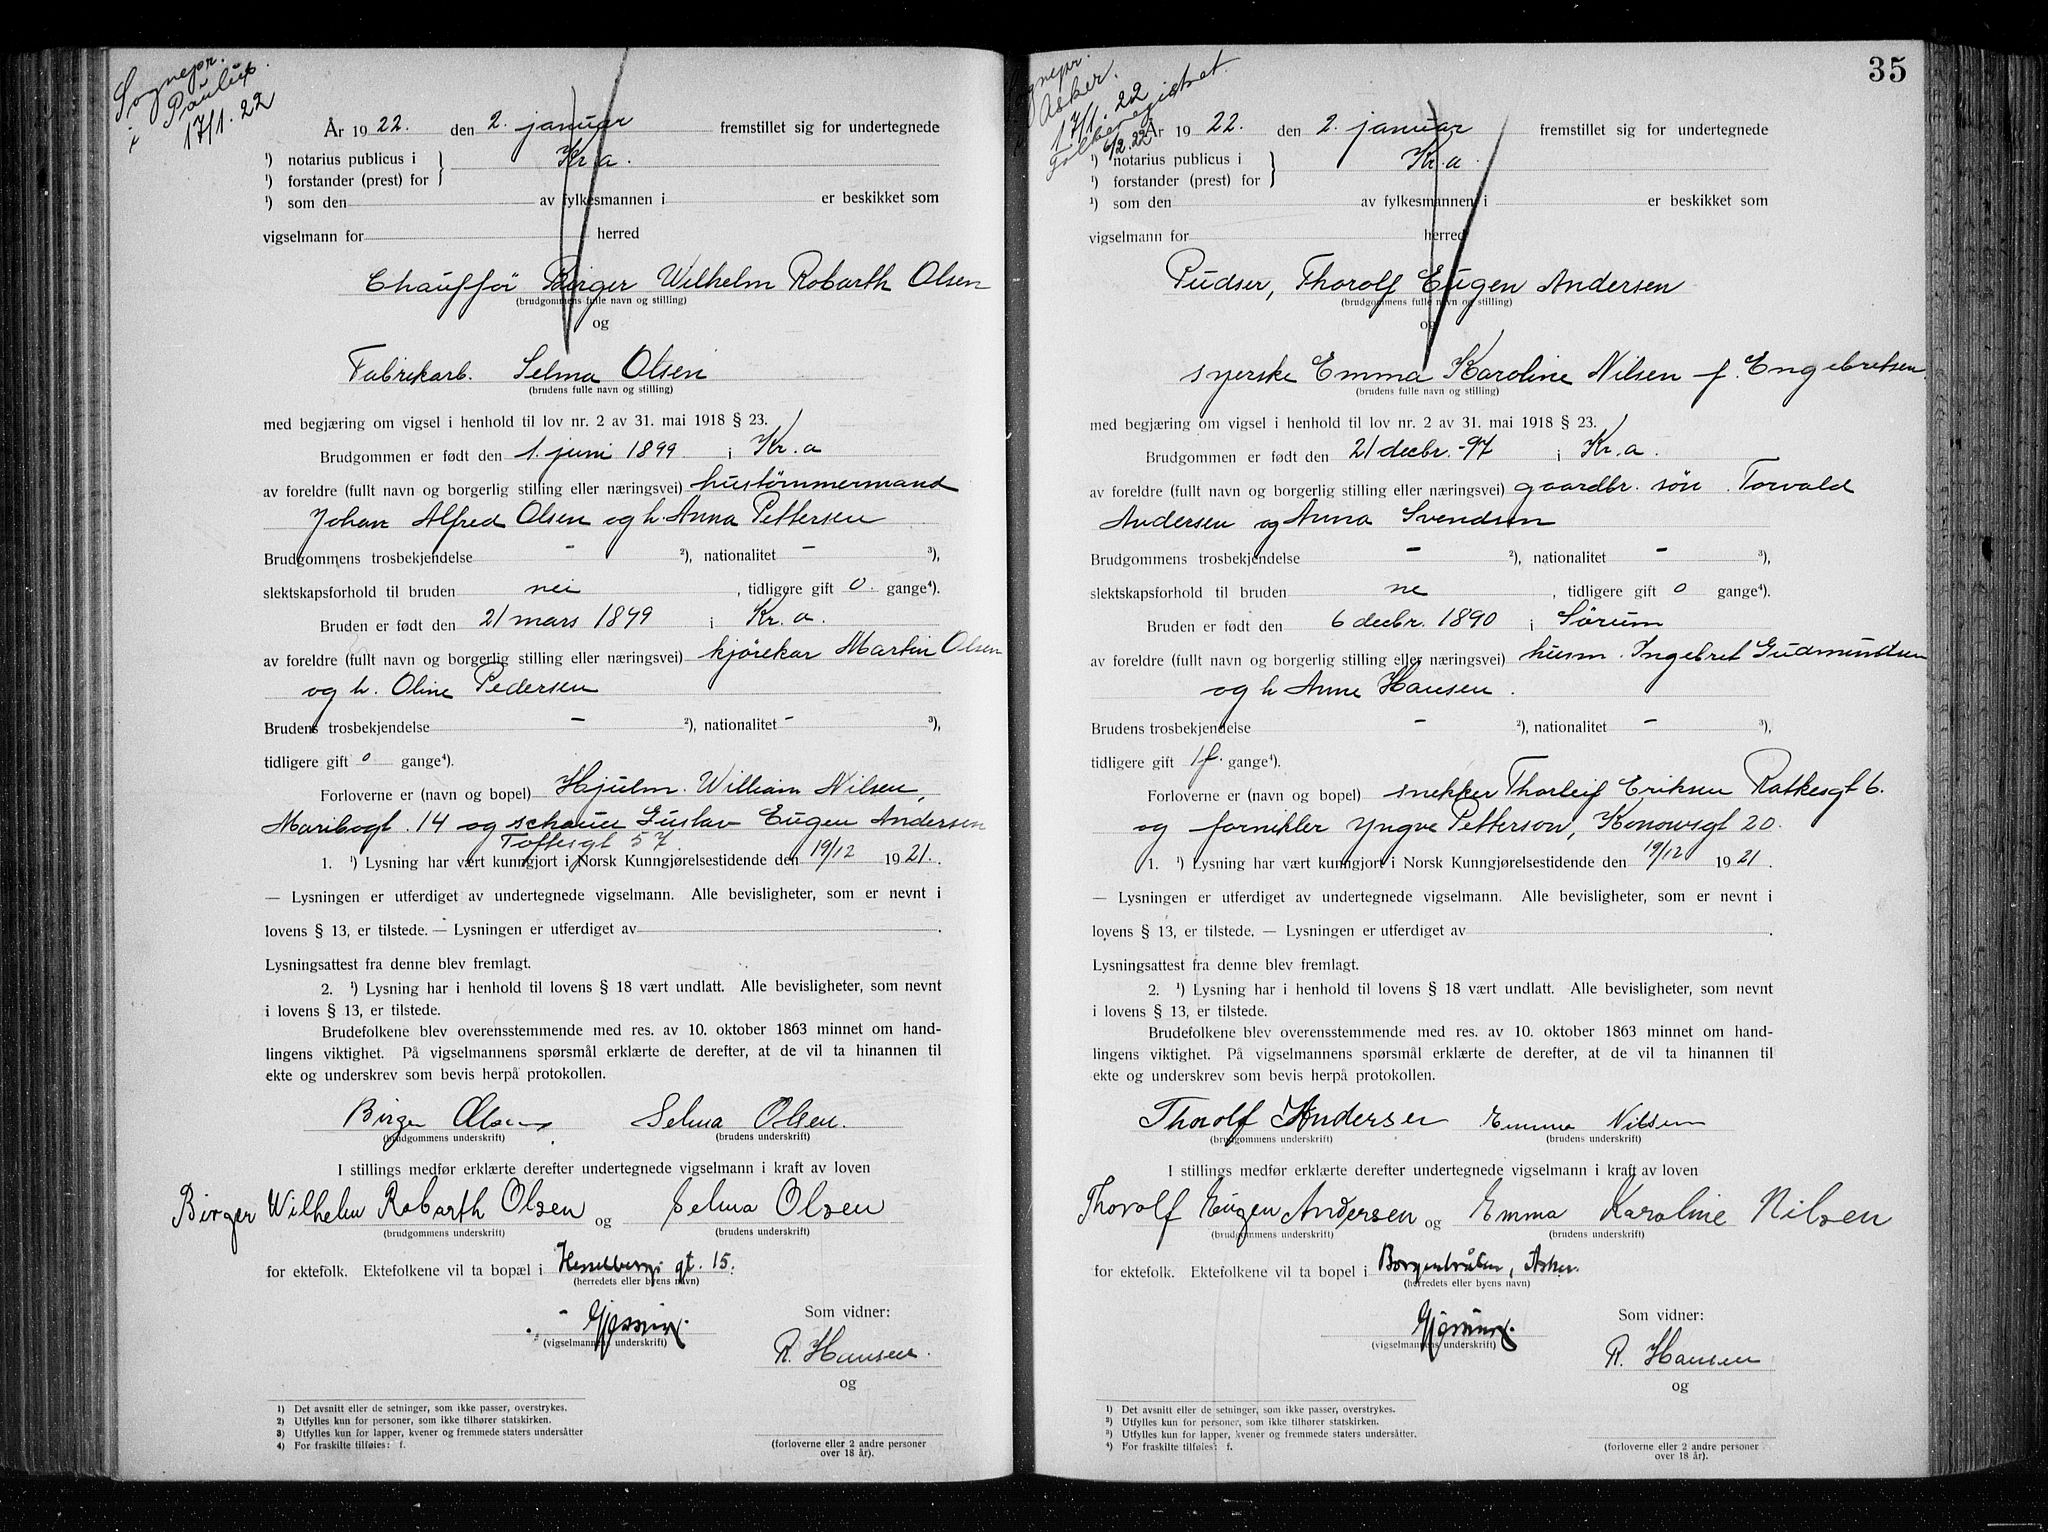 Sognepr.
i Paulus
17/1. 22
År 1922. den 2. januar fremstillet sig for undertegnede
¹) notarius publicus i } Kr.a.
¹) forstander (prest) for
¹) som den av fylkesmannen i er beskikket som
vigselmann for herred
Chauffør Birger Wilhelm Robarth Olsen
(brudgommens fulle navn og stilling)
og
Fabrikarb. Selma Olsen
(brudens fulle navn og stilling)
med begjæring om vigsel i henhold til lov nr. 2 av 31. mai 1918 § 23.
Brudgommen er født den 1. juni 1899 i Kr.a
av foreldre (fullt navn og borgerlig stilling eller næringsvei) hustømmermand
Johan Alfred Olsen og h. Anna Pettersen
Brudgommens trosbekjendelse - ²), nationalitet - ³),
slektskapsforhold til bruden nei , tidligere gift 0. gange⁴).
Bruden er født den 21 mars 1899 i Kr.a.
av foreldre (fullt navn og borgerlig stilling eller næringsvei) kjørekar Martin Olsen
og h. Oline Pedersen
Brudens trosbekjendelse - ²), nationalitet - ³),
tidligere gift 0 gange⁴).
Forloverne er (navn og bopel) Hjulm. William Nilsen,
Maribogt. 14 og schauer Gustav Eugen Andersen
Toftesgt 57
1. ¹) Lysning har vært kunngjort i Norsk Kunngjørelsestidende den 19/12 1921.
— Lysningen er utferdiget av undertegnede vigselmann. Alle bevisligheter, som er nevnt i
lovens § 13, er tilstede. — Lysningen er utferdiget av .
Lysningsattest fra denne blev fremlagt.
2. ¹) Lysning har i henhold til lovens § 18 vært undlatt. Alle bevisligheter, som nevnt
i lovens § 13, er tilstede.
Brudefolkene blev overensstemmende med res. av 10. oktober 1863 minnet om hand-
lingens viktighet. På vigselmannens spørsmål erklærte de derefter, at de vil ta hinannen til
ekte og underskrev som bevis herpå protokollen.
Birger Olsen Selma Olsen.
(brudgommens underskrift) (brudens underskrift)
I stillings medfør erklærte derefter undertegnede vigselmann i kraft av loven
Birger Wilhelm Robarth Olsen og Selma Olsen
(brudgommens underskrift) (brudens underskrift)
for ektefolk. Ektefolkene vil ta bopæl i Hesselbergs gt. 15.
(herredets eller byens navn)
(vigselmannens underskrift)
Som vidner:
R. Hansen.
og
(forloverne eller 2 andre personer
over 18 år).
1) Det avsnitt eller de setninger, som ikke passer, overstrykes.
2) Utfylles kun for personer, som ikke tilhører statskirken.
3) Utfylles kun for lapper, kvener og fremmede staters undersåtter
4) For fraskilte tilføies: f.
35
Asker.
17/1. 22
Folkeregistret
6/2. 22
År 1922. den 2. januar fremstillet sig for undertegnede
¹) notarius publicus i } Kr.a.
¹) forstander (prest) for
¹) som den av fylkesmannen i er beskikket som
vigselmann for herred
Pudser, Thorolf Eugen Andersen
(brudgommens fulle navn og stilling)
og
syerske Emma Karoline Nilsen f. Engebretsen.
(brudens fulle navn og stilling)
med begjæring om vigsel i henhold til lov nr. 2 av 31. mai 1918 § 23.
Brudgommen er født den 21 decbr. -97 i Kr.a.
av foreldre (fullt navn og borgerlig stilling eller næringsvei) gaardbr. søn Torvald
Andersen og Anna Svendsen
Brudgommens trosbekjendelse - ²), nationalitet - ³),
slektskapsforhold til bruden ne , tidligere gift 0 gange⁴).
Bruden er født den 6 decbr. 1890 i Sørum
av foreldre (fullt navn og borgerlig stilling eller næringsvei) husm. Ingebret Gudmundsen
og h Anne Hansen.
Brudens trosbekjendelse - ²), nationalitet - ³),
tidligere gift 1f. gange⁴).
Forloverne er (navn og bopel) snekker Thorleif Eriksen Ratkesgt 6.
og fornikler Yngve Petterson, Konowsgt 20.
1. ¹) Lysning har vært kunngjort i Norsk Kunngjørelsestidende den 19/12 1921.
— Lysningen er utferdiget av undertegnede vigselmann. Alle bevisligheter, som er nevnt i
lovens § 13, er tilstede. — Lysningen er utferdiget av .
Lysningsattest fra denne blev fremlagt.
2. ¹) Lysning har i henhold til lovens § 18 vært undlatt. Alle bevisligheter, som nevnt
i lovens § 13, er tilstede.
Brudefolkene blev overensstemmende med res. av 10. oktober 1863 minnet om hand-
lingens viktighet. På vigselmannens spørsmål erklærte de derefter, at de vil ta hinannen til
ekte og underskrev som bevis herpå protokollen.
Thorolf Andersen Emma Nilsen
(brudgommens underskrift) (brudens underskrift)
I stillings medfør erklærte derefter undertegnede vigselmann i kraft av loven
Thorolf Eugen Andersen og Emma Karoline Nilsen
(brudgommens underskrift) (brudens underskrift)
for ektefolk. Ektefolkene vil ta bopel i Borgenbråten, Asker.
(herredets eller byens navn)
(vigselmannens underskrift)
Som vidner:
R. Hansen
og
(forloverne eller 2 andre personer
over 18 år).
1) Det avsnitt eller de setninger, som ikke passer, overstrykes.
2) Utfylles kun for personer, som ikke tilhører statskirken.
3) Utfylles kun for lapper, kvener og fremmede staters undersåtter.
4) For fraskilte tilføies: f.